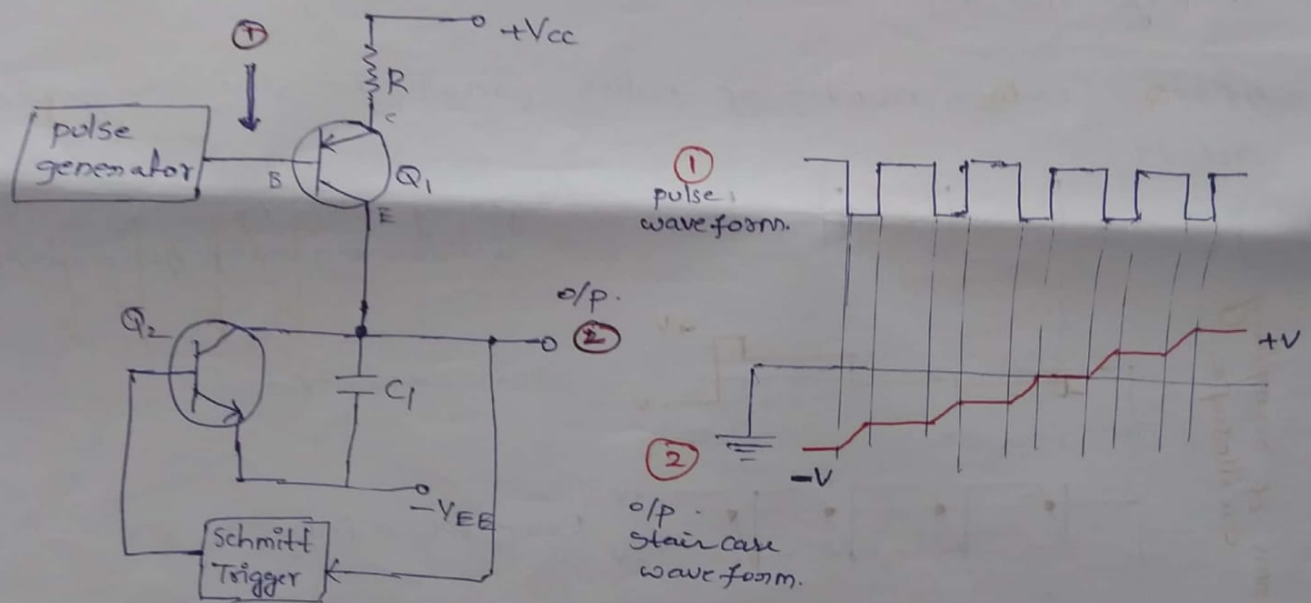 ①
+Vcc
R
C
pulse
generator
B
Q1
E
Q2
o/p.
②
C1
-VEE
Schmitt
Trigger
①
pulse
waveform.
+V
②
-V
o/p.
Stair case
waveform.